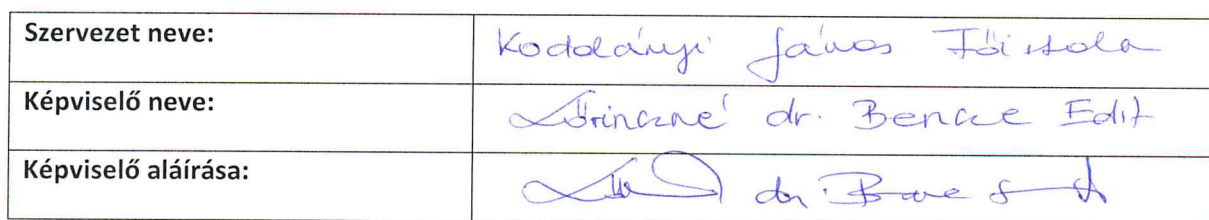 Szervezet neve: Kodolányi János Főiskola
Képviselő neve: Lőrinczné dr. Bencze Edit
Képviselő aláírása: dr. Bencze